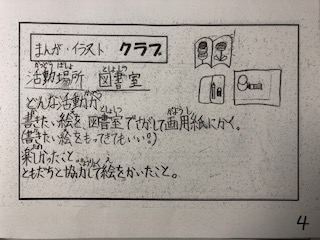 まんが・イラスト クラブ
活動場所 図書室
どんな活動か
書きたい絵を図書室でさがして画用紙にかく。
(書きたい絵をもってきてもいい!)
楽しかったこと
ともだちと協力して絵をかいたこと。
4